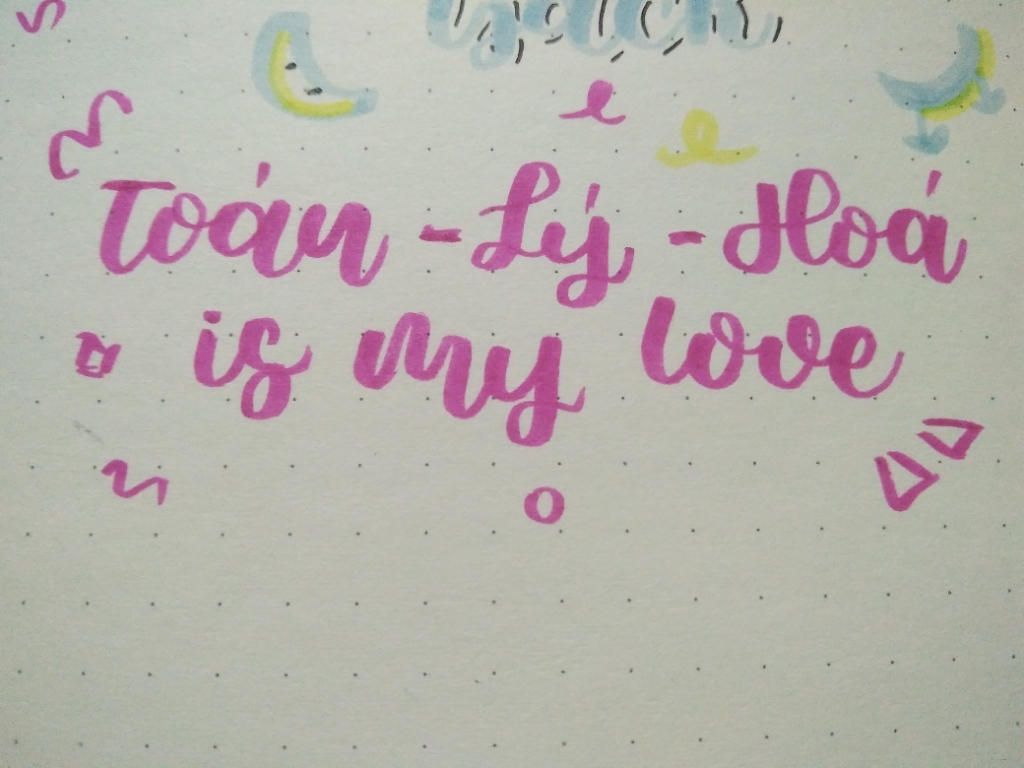 Toán - Lý - Hoá
is my love